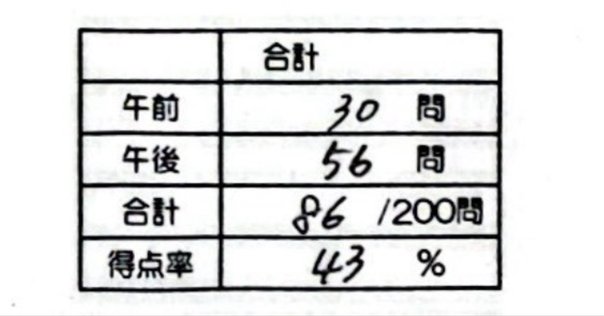 合計
午前 30 問
午後 56 問
合計 86 /200問
得点率 43 %